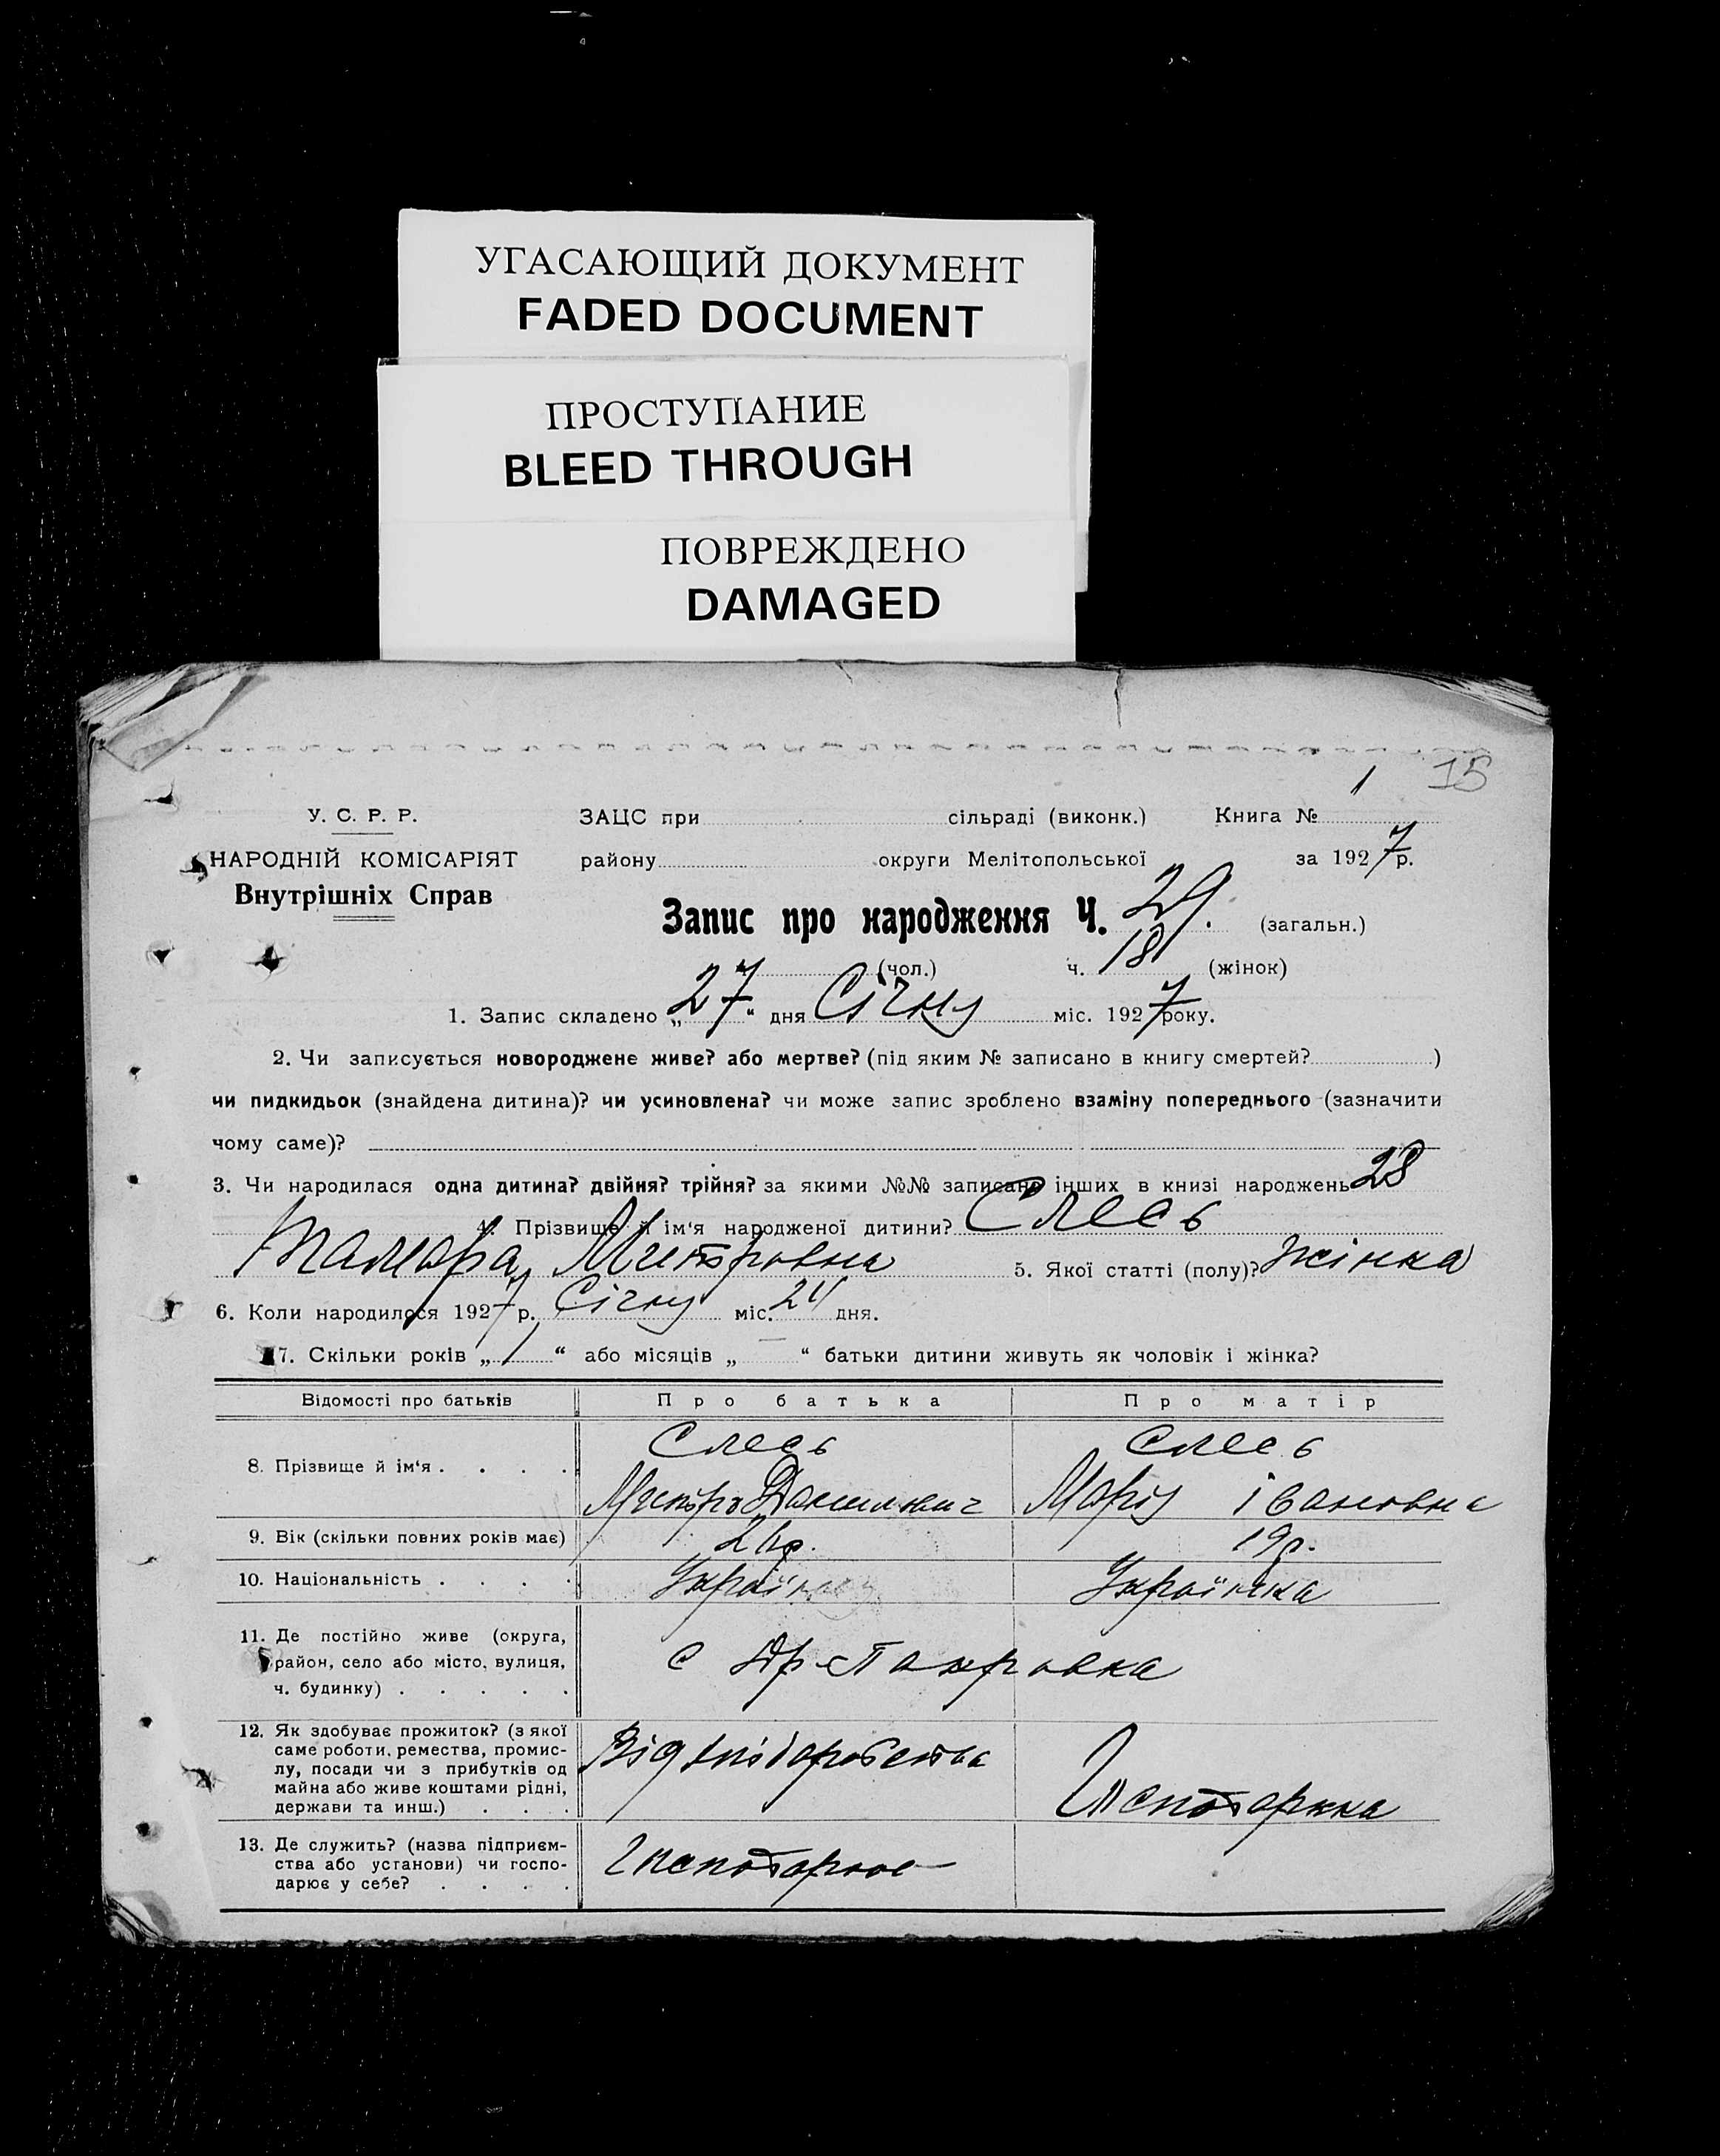 УГАСАЮЩИЙ ДОКУМЕНТ
FADED DOCUMENT
ПРОСТУПАНИЕ
BLEED THROUGH
ПОВРЕЖДЕНО
DAMAGED
1 15
У. С. Р. Р. ЗАЦС при сільраді (виконк.) Книга №
НАРОДНІЙ КОМІСАРІЯТ району округи Мелітопольської за 1927 р.
Внутрішніх Справ
Запис про народження Ч. 29. (загальн.)
(чол.) ч. 18 (жінок)
1. Запис складено „27“ дня Січню міс. 1927 року.
2. Чи записується новороджене живе? або мертве? (під яким № записано в книгу смертей? )
чи пидкидьок (знайдена дитина)? чи усиновлена? чи може запис зроблено взаміну попереднього (зазначити
чому саме)?
3. Чи народилася одна дитина? двійня? трійня? за якими №№ записано інших в книзі народжень 28
4. Прізвище й ім'я народженої дитини? Слесь
Тамара Митровна 5. Якої статті (полу)? жінка
6. Коли народилося 1927 р. Січню міс. 24 дня.
7. Скільки років „1“ або місяців „ “ батьки дитини живуть як чоловік і жінка?
Відомості про батьків Про батька Про матір
Слесь Слесь
8. Прізвище й ім'я . . . .
Митро Данилович Марія Івановна
9. Вік (скільки повних років має) 19 р.
10. Національність . . . . Українка
11. Де постійно живе (округа,
район, село або місто, вулиця, с
ч. будинку) . . . . .
12. Як здобуває прожиток? (з якої
саме роботи, ремества, промис-
лу, посади чи з прибутків од
майна або живе коштами рідні,
держави та инш.) . . .
13. Де служить? (назва підприєм-
ства або установи) чи госпо-
дарює у себе? . . . .